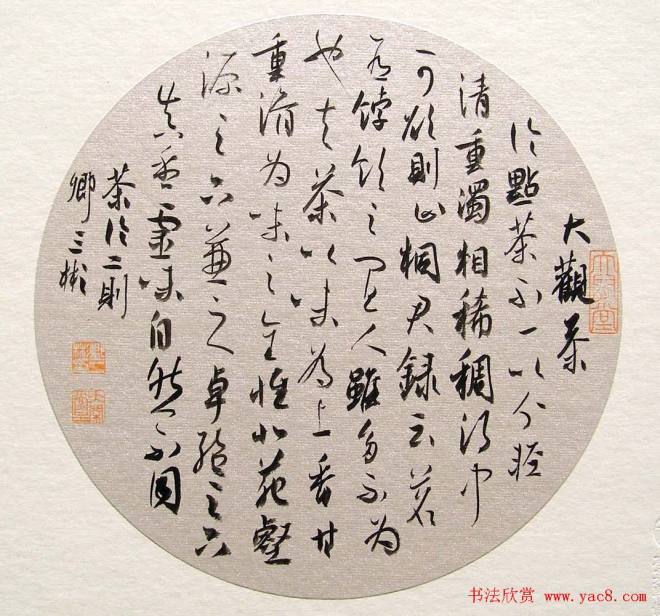 大觀茶
论點茶不一以分轻
清重濁相稀稠得中
可欲則止桐君録云茗
有饽饮之宜人雖多不为
也夫茶以味为上香甘
重滑为味之全惟北苑壑
源之品兼之卓绝之品
真香靈味自然不同
茶论二則
卿三彬
书法欣赏 www.yac8.com